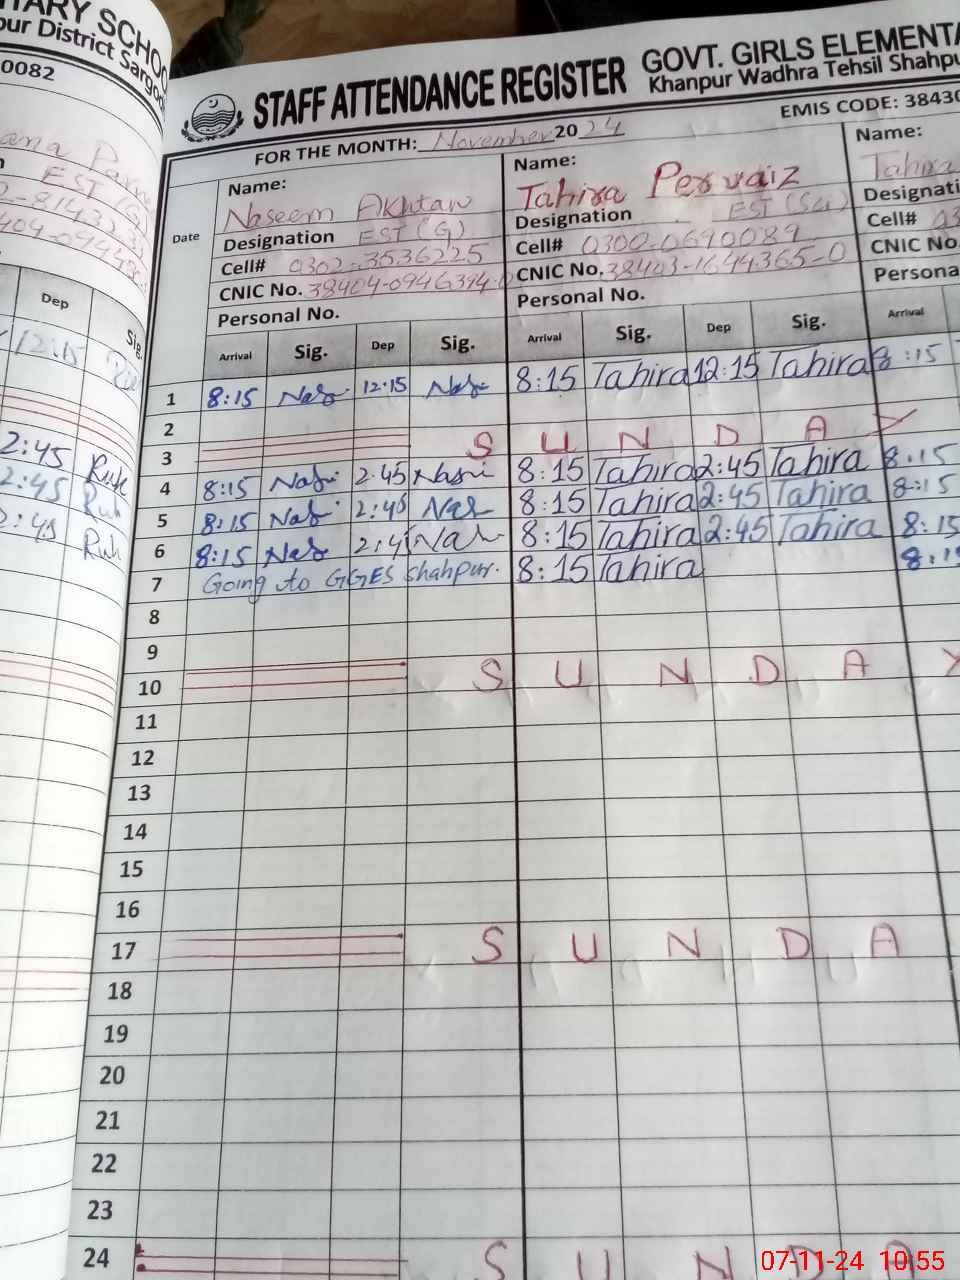 TARY SCHOO
pur District Sargo
0082
EST (G)
Dep
Sig.
12:15
2:45 Ruk
2:45 Ruh
2:45 Ruh
STAFF ATTENDANCE REGISTER
GOVT. GIRLS ELEMENTA
Khanpur Wadhra Tehsil Shahpu
EMIS CODE: 38430
FOR THE MONTH: November 2024
Date
Name: Naseem Akhtar
Designation EST (G)
Cell# 0302-3536225
CNIC No. 38404-0946394-0
Personal No.
Name: Tahira Pervaiz
Designation EST (Sci)
Cell# 0300-0690089
CNIC No. 38403-1644365-0
Personal No.
Name: Tahira
Designati
Cell# 03
CNIC No.
Persona
Arrival Sig. Dep Sig. Arrival Sig. Dep Sig. Arrival
1 8:15 Nas 12:15 Nas 8:15 Tahira 12:15 Tahira 8:15
2
3 S U N D A Y
4 8:15 Nas 2:45 Nas 8:15 Tahira 2:45 Tahira 8:15
5 8:15 Nas 2:45 Nas 8:15 Tahira 2:45 Tahira 8:15
6 8:15 Nas 2:4 Nas 8:15 Tahira 2:45 Tahira 8:15
7 Going to GGES Shahpur. 8:15 Tahira 8:15
8
9
10 S U N D A Y
11
12
13
14
15
16
17 S U N D A
18
19
20
21
22
23
24 S U N D A
07-11-24 10:55